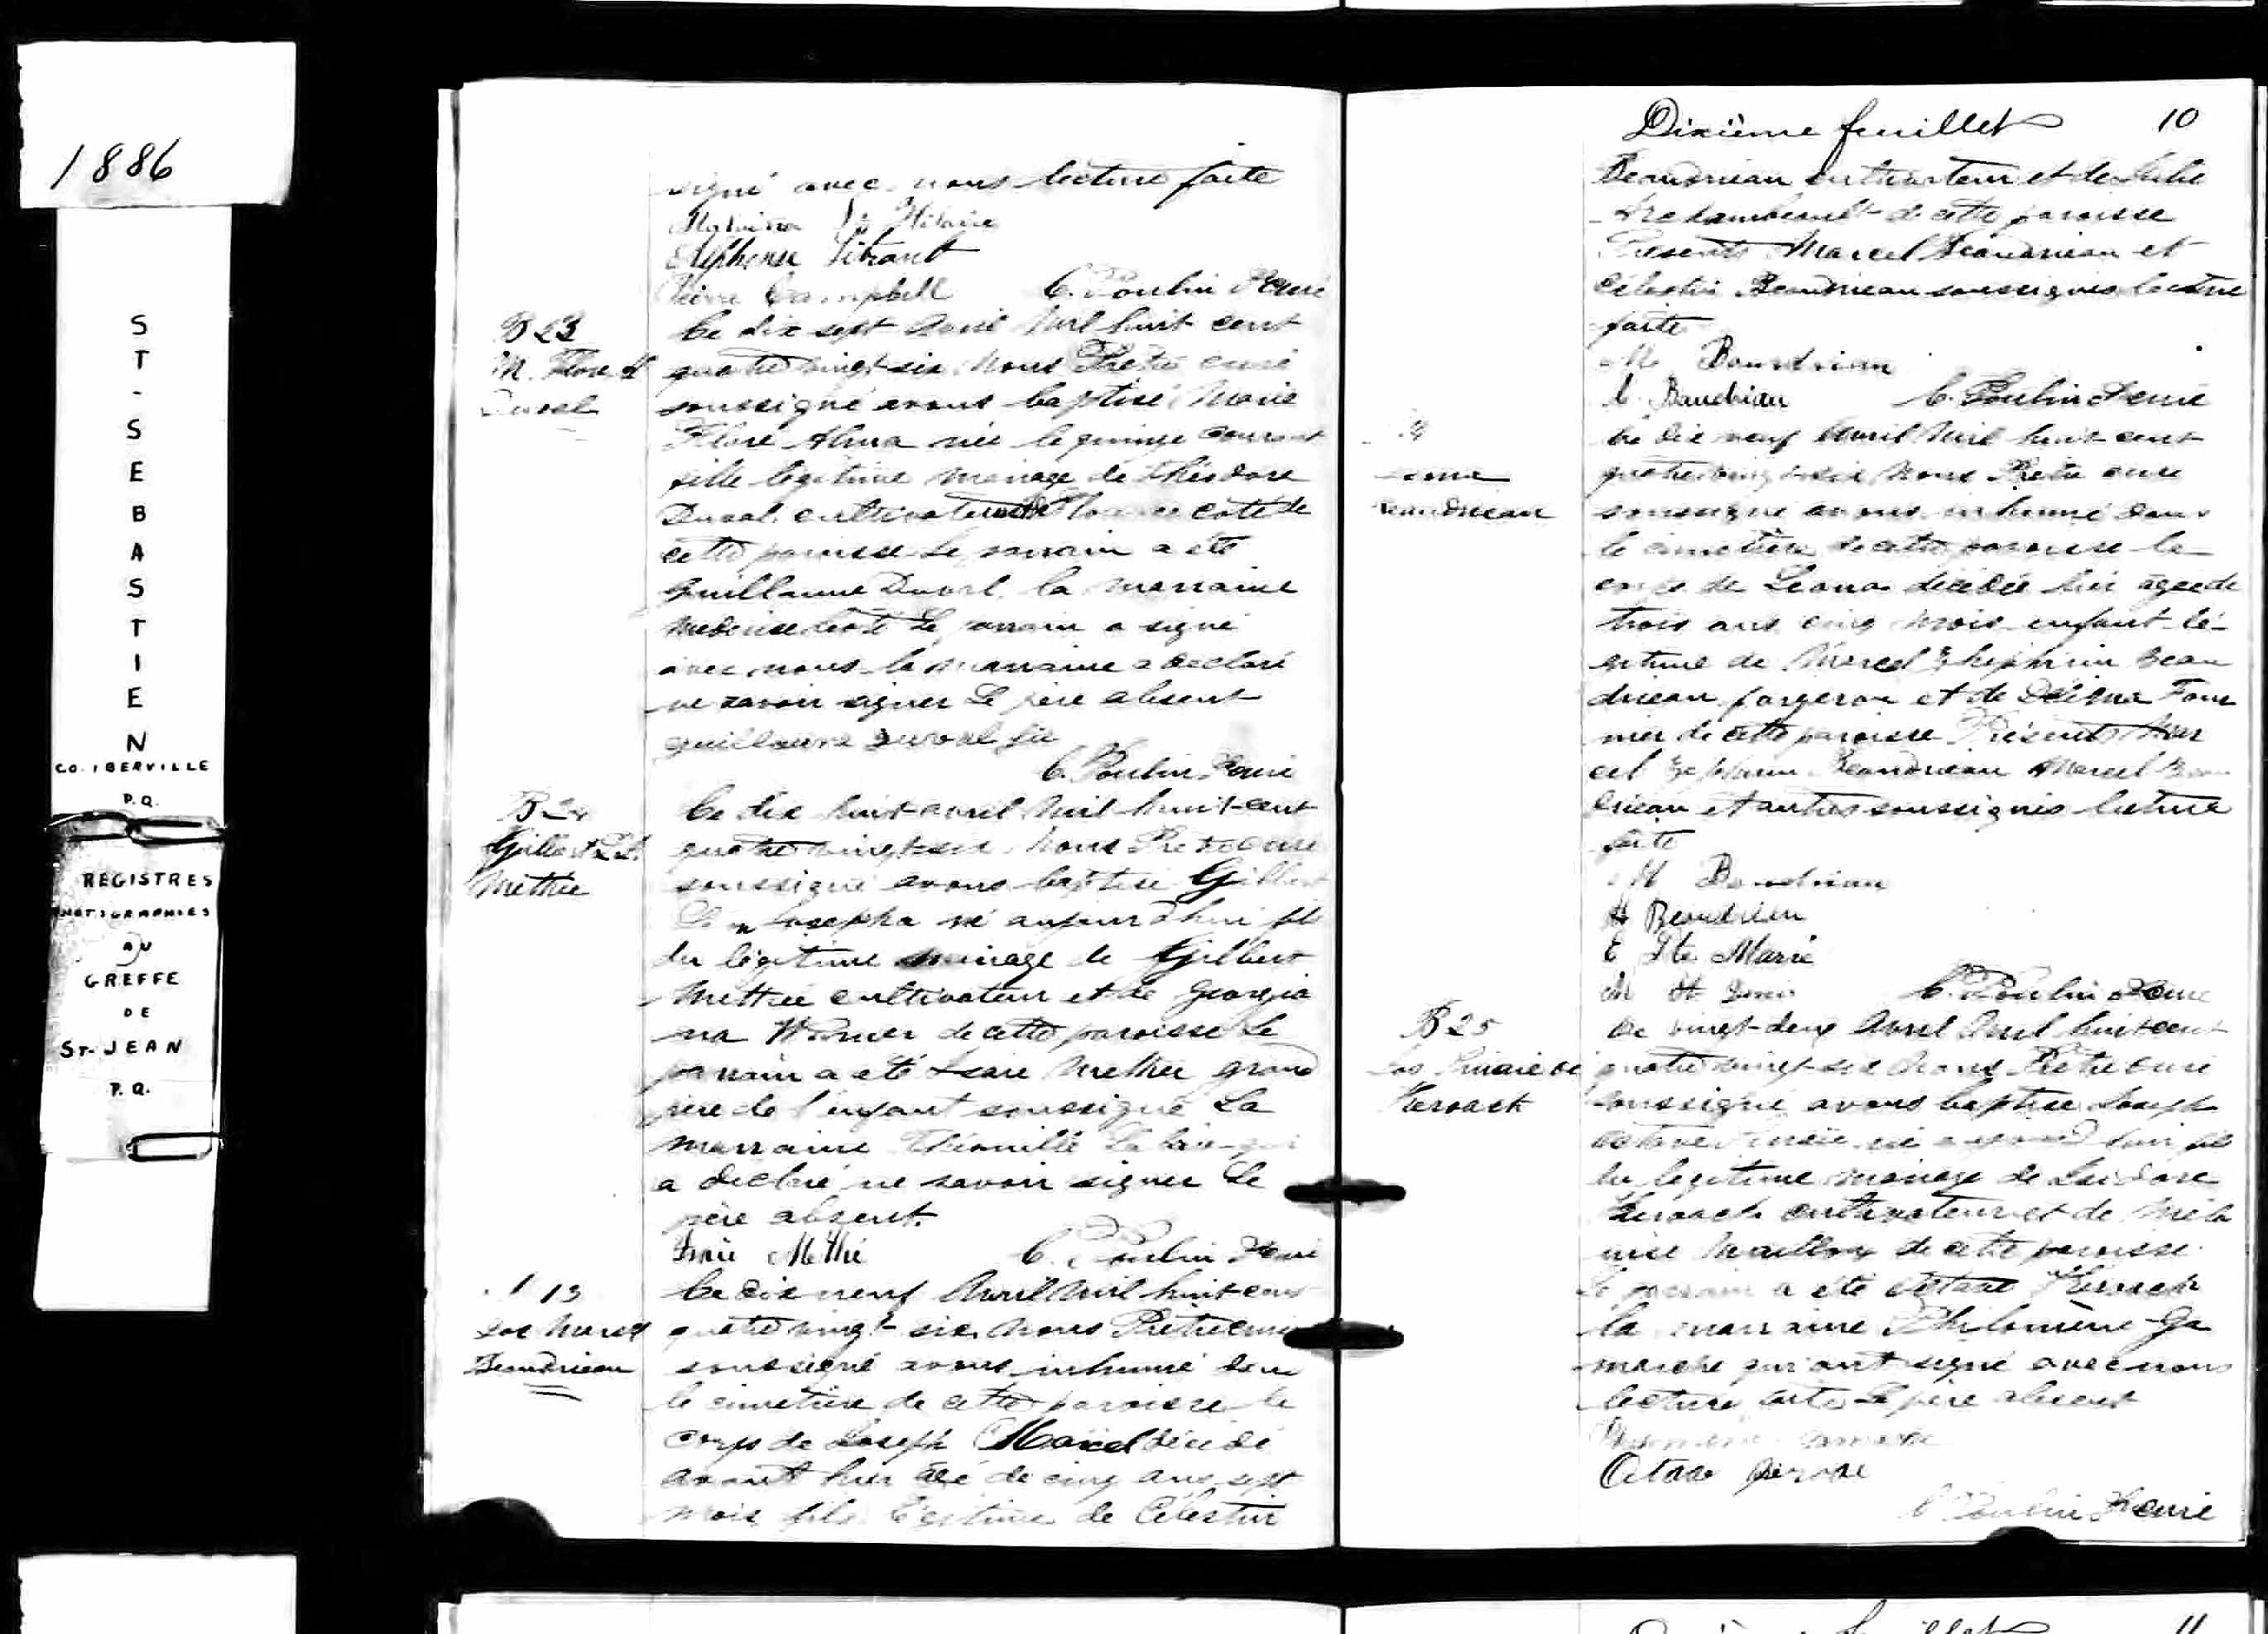 1886
ST-SEBASTIEN
CO. IBERVILLE
P.Q.
REGISTRES
PHOTOGRAPHIES
AU
GREFFE
DE
ST-JEAN
P.Q.
signé avec nous lecture faite
St Hilaire
Alphonse
Campbell C. Poulin Ptre curé
B 23
M. Flore A
Duval
Ce dix sept Avril mil huit cent
quatre vingt-six, Nous Prêtre curé
soussigné avons baptisé Marie
Flore Alma née le quinze courant
fille légitime mariage de Théodore
Duval cultivateur côté de
cette paroisse Le parrain a été
Guillaume Duval la marraine
Le parrain a signé
avec nous la marraine a déclaré
ne savoir signer Le père absent
guillaume duval fils
C. Poulin Ptre curé
B 24
Gilbert
Methée
Ce dix huit avril mil huit-cent
quatre vingt-six, Nous Prêtre curé
soussigné avons baptisé Gilbert
Josepha né aujourd'hui fils
du légitime mariage de Gilbert
Methée cultivateur et de Georgia
na de cette paroisse Le
parrain a été Isaie Methée grand
père de l'enfant soussigné La
marraine qui
a déclaré ne savoir signer Le
père absent.
Isaie Methé C. Poulin Ptre curé
13
Jos Marcel
Beaudrieau
Ce dix neuf Avril mil huit cent
quatre vingt-six, Nous Prêtre curé
soussigné avons inhumé dans
le cimetière de cette paroisse le
corps de Joseph Marcel décédé
avant hier âgé de cinq ans sept
mois fils légitime de Célestin
Dixième feuillet 10
Beaudrieau cultivateur et de Julie
Archambeault de cette paroisse
Présents Marcel Beaudrieau et
Célestin Beaudrieau soussignés lecture
faite
M Boudriau
C. Baudriau C. Poulin Ptre curé
Beaudrieau
Ce dix neuf Avril mil huit cent
quatre vingt six Nous Prêtre curé
soussigné avons inhumé dans
le cimetière de cette paroisse le
corps de Leona décédée hier âgée de
trois ans cinq mois enfant lé-
gitime de Marcel Zhéphirin Beau
drieau forgeron et de Délima Four
nier de cette paroisse Présents Mar
cel Zephirin Beaudrieau Marcel Beau
drieau et autres soussignés lecture
faite
M Boudriau
H Beaudrieu
E Ste Marie
C. Poulin Ptre curé
B 25
Jos
Keroack
Ce vingt-deux Avril mil huit cent
quatre vingt-six Nous Prêtre curé
soussigné avons baptisé Joseph
né aujourd'hui fils
du légitime mariage de Isidore
Keroack cultivateur et de Méla
nise de cette paroisse.
Le parrain a été Octave Keroack
la marraine Philomène Ga
mache qui ont signé avec nous
lecture faite Le père absent
Octave
C Poulin Ptre curé
11